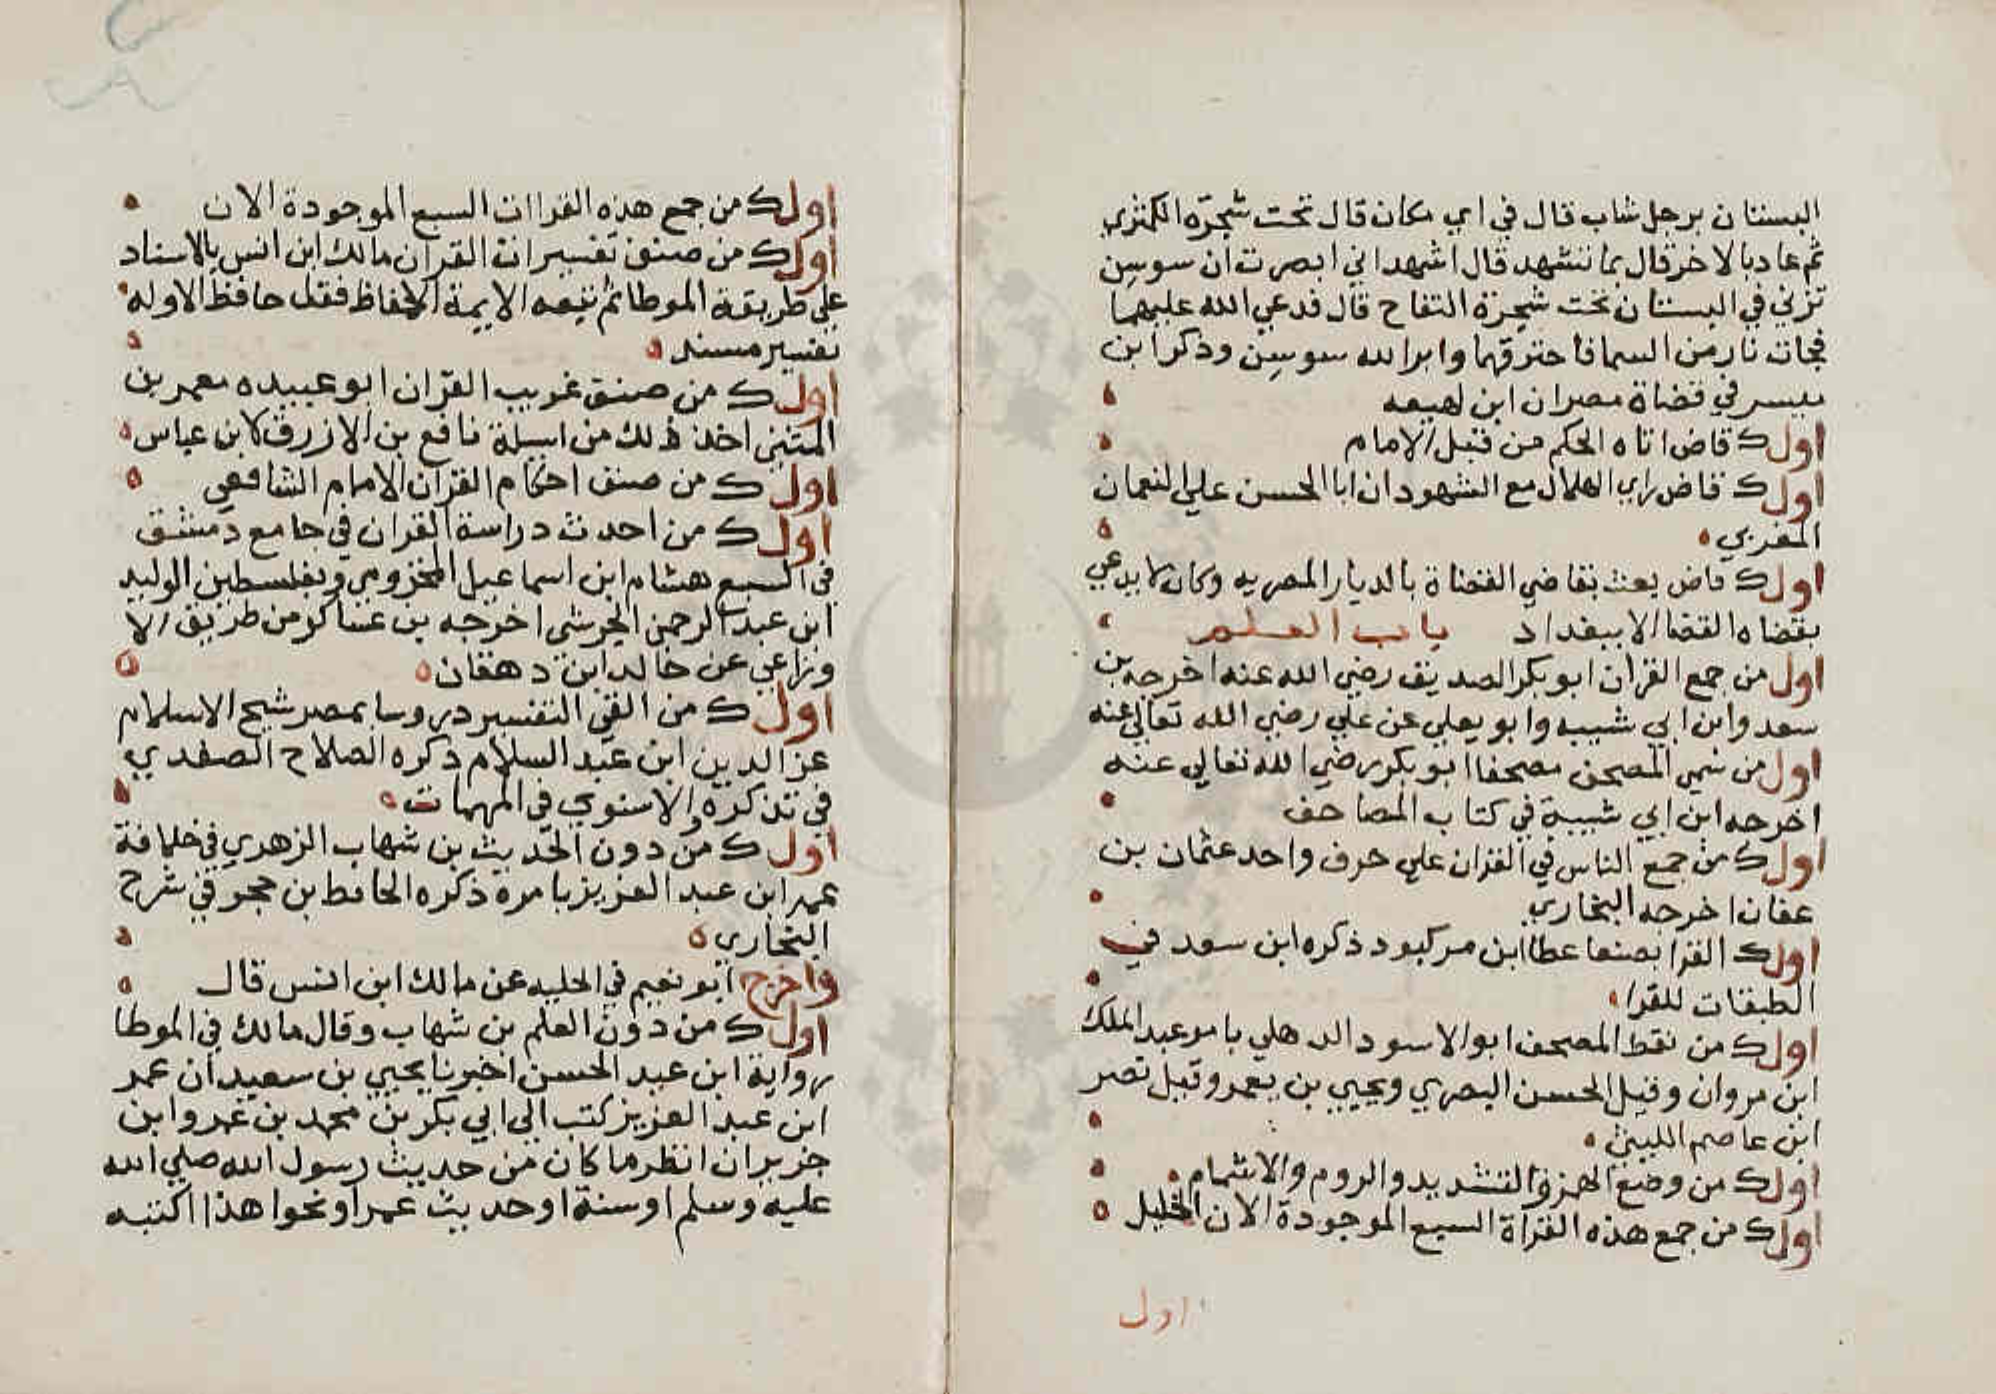 البستان برجل شاب قال في اي مكان قال تحت شجرة الكمثري
ثم عاد بالاخر قال بما تشهد قال اشهد اني ابصرت ان سوسن
تزني في البستان تحت شجرة التفاح قال فدعي الله عليهما
فجات نار من السما فاحترقهما وابرا لله سوسن وذكر ابن
ميسر في قضاة مصر ان ابن لهيعه
اول قاض اتاه الحكم من قبل الامام
اول قاض راي الهلال مع الشهود ان ابا الحسن علي النعمان
المغربي
اول قاض يعث بقاضي القضاة بالديار المصريه وكان لا يدعي
بقضاه القضا الا ببغداد باب العلم
اول من جمع القران ابو بكر الصديق رضي الله عنه اخرجه بن
سعد وابن ابي شيبه وابو يعلي عن علي رضي الله تعالي عنه
اول من سمي المصحف مصحفا ابو بكر رضي الله تعالي عنه
اخرجه ابن ابي شيبة في كتاب المصاحف
اول من جمع الناس في القران علي حرف واحد عثمان بن
عفان اخرجه البخاري
اول القرا بصنعا عطا ابن مركبود ذكره ابن سعد في
الطبقات للقرا
اول من نقط المصحف ابو الاسود الدهلي بامر عبد الملك
ابن مروان وقيل الحسن البصري ويحيي بن يعمر وقيل نصر
ابن عاصم الليثي
اول من وضع الهمز والتشديد والروم والاشمام
اول من جمع هذه القراة السبع الموجودة الان الخليل
اول
اول من جمع هذه القراات السبع الموجودة الان
اول من صنف تفسيرات القران مالك ابن انس بالاسناد
علي طريقة الموطا ثم تبعه الايمة الحفاظ فقل حافظ الاوله
تفسير مسند
اول من صنف غريب القران ابو عبيده معمر بن
المثني اخذ ذلك من اسيلة نافع بن الازرق لابن عباس
اول من صنف احكام القران الامام الشافعي
اول من احدث دراسة القران في جامع دمشق
في السبع هشام ابن اسماعيل المخزومي وبفلسطين الوليد
ابن عبد الرحمن الجرشي اخرجه بن عساكر من طريق الا
وزاعي عن خالد ابن دهقان
اول من القي التفسير دروسا بمصر شيخ الاسلام
عز الدين ابن عبد السلام ذكره الصلاح الصفدي
في تذكره والاسنوي في المهمات
اول من دون الحديث بن شهاب الزهري في خلافة
عمر ابن عبد العزيز بامره ذكره الحافظ بن حجر في شرح
البخاري
واخرج ابو نعيم في الحليه عن مالك ابن انس قال
اول من دون العلم بن شهاب وقال مالك في الموطا
رواية ابن عبد الحسن اخبرنا يحيي بن سعيد ان عمر
ابن عبد العزيز كتب الي ابي بكر بن محمد بن عمرو ابن
جزير ان انظر ما كان من حديث رسول الله صلي الله
عليه وسلم او سنة او حديث عمر او نحوا هذا اكتبه